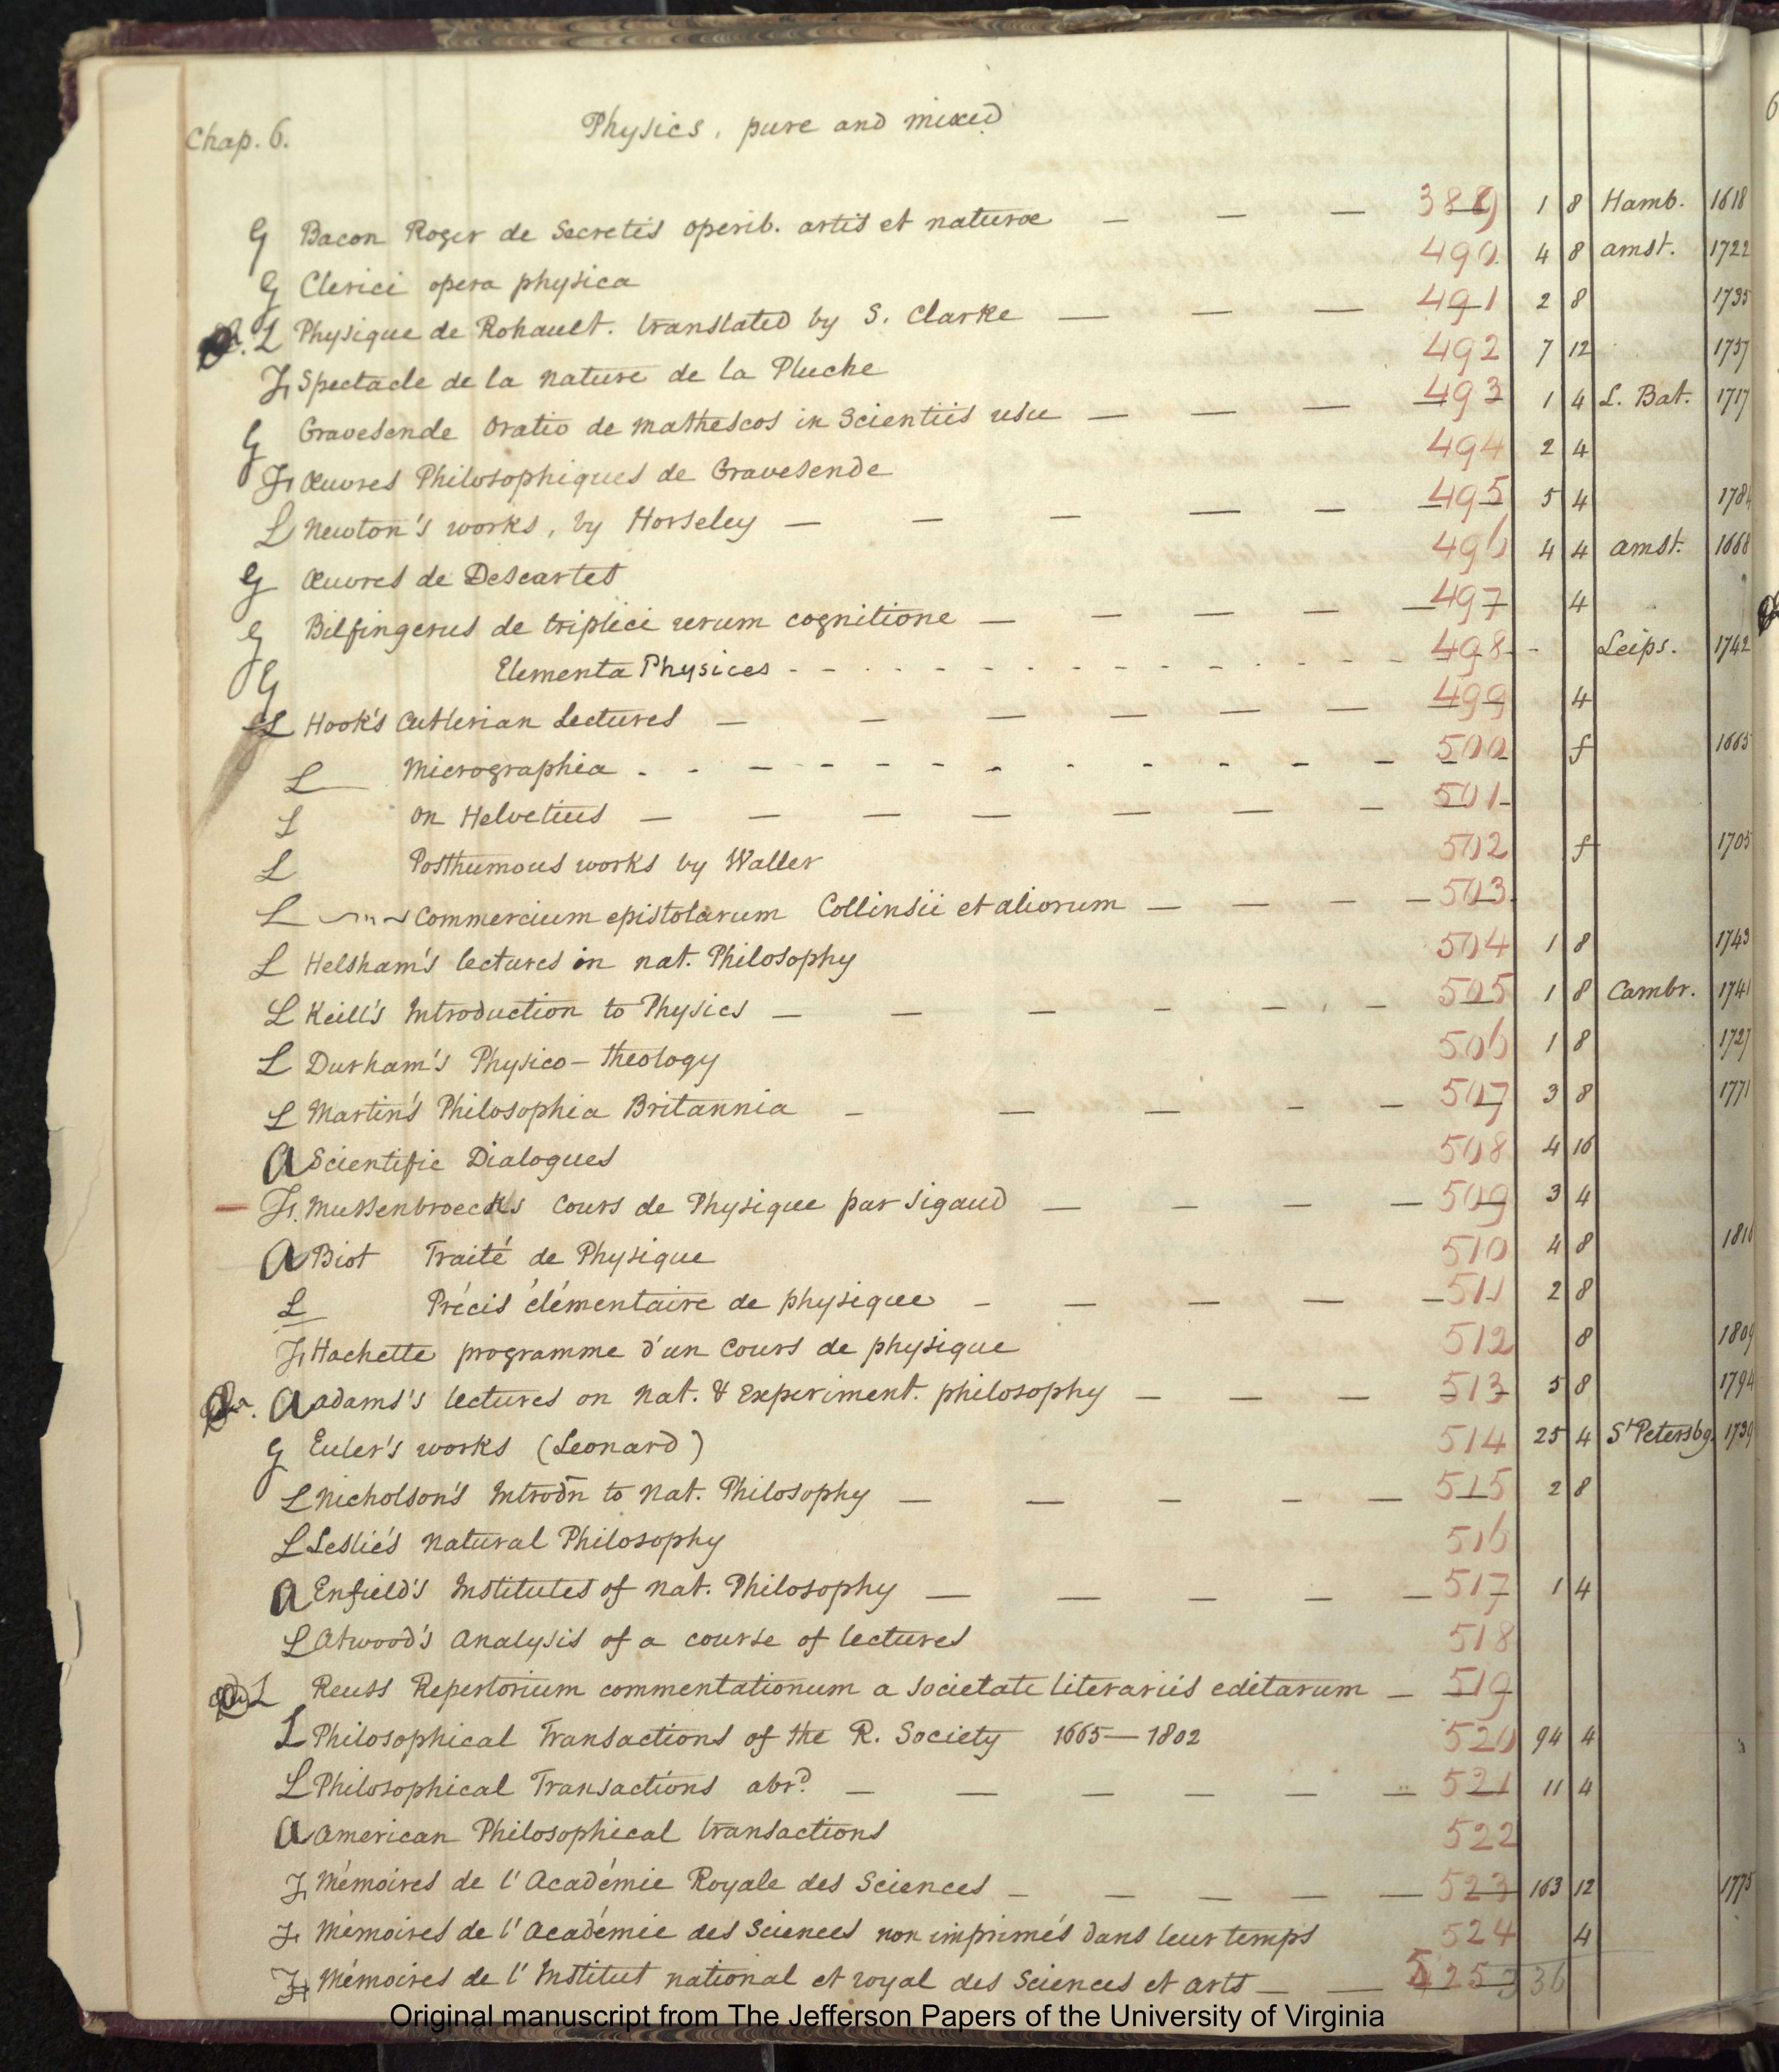 Chap. 6. Physics, pure and mixed
G Bacon Roger de Secretis operib. artis et naturæ — — — 389 1 8 Hamb. 1618
G Clerici opera physica 490. 4 8 amst. 1722
L Physique de Rohault. translated by S. Clarke — — — 491 2 8 1735
F Spectacle de la nature de la Pluche 492 7 12 1757
G Gravesende Oratio de matheseos in Scientiis usu — — — 493 1 4 L. Bat. 1717
F Œuvres Philosophiques de Gravesende 494 2 4
L Newton's works, by Horseley — — — — — 495 5 4 178
G Œuvres de Descartes 496 4 4 amst. 1668
G Bilfingerus de triplici rerum cognitione — — — — — 497 4
G Elementa Physices - - - - - - - - 498 - - Leips. 1742
L Hook's Cutlerian Lectures — — — — — — 499 4
L Micrographia - - — - - - - - - - - - 500 f 1665
L on Helvetius — — — — — — — 501
L Posthumous works by Waller 502 f 1705
L Commercium epistolarum Collinsii et aliorum — — — — 503.
L Helsham's lectures in nat. Philosophy 504 1 8 1743
L Keill's Introduction to Physics — — — - - - 505 1 8 Cambr. 1741
L Durham's Physico-theology 506 1 8 1727
L Martin's Philosophia Britannia - — — - — 507 3 8 1771
A Scientific Dialogues 508 4 16
— F. Mussenbroecks Cours de Physique par Sigaud — — — — 509 3 4
A Biot Traité de Physique 510 4 8 1816
L Précis élémentaire de physique - — — — — 511 2 8
F Hachette programme d'un Cours de physique 512 8 1809
A adams's lectures on Nat. & Experiment. philosophy — — — 513 5 8 1794
G Euler's works (Leonard) 514 25 4 St Petersbg. 1739
L Nicholson's Introdn to Nat. Philosophy — — - - — 515 2 8
L Leslie's Natural Philosophy 516
A Enfield's Institutes of nat. Philosophy — — — — — 517 1 4
L Atwood's Analysis of a course of lectures 518
L Reuss Repertorium commentationum a societate literariis editarum — 519
L Philosophical Transactions of the R. Society 1665—1802 520 94 4
L Philosophical Transactions abrd. — — — — — — 521 11 4
A American Philosophical transactions 522
F Mémoires de l'Académie Royale des Sciences — — — — — 523 163 12 1775
F Mémoires de l'Académie des Sciences non imprimés dans leur temps 524 4
F Mémoires de l'Institut national et royal des Sciences et arts — — 525 36
Original manuscript from The Jefferson Papers of the University of Virginia